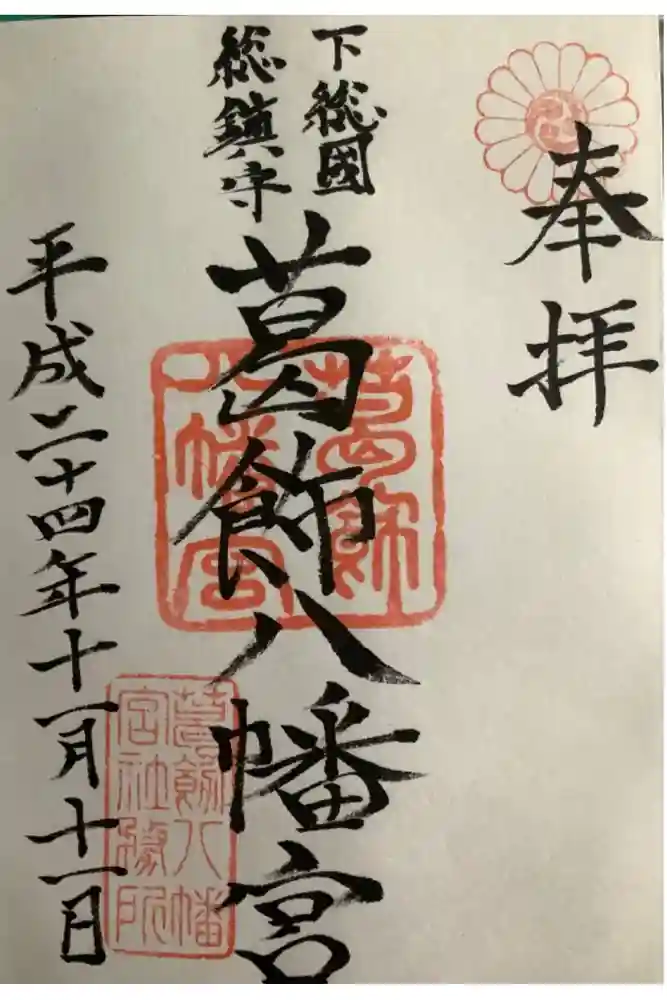 奉拝
下総國
総鎮守
葛飾八幡宮
葛飾
八幡宮
平成二十四年十一月十一日
葛飾八幡
宮社務所